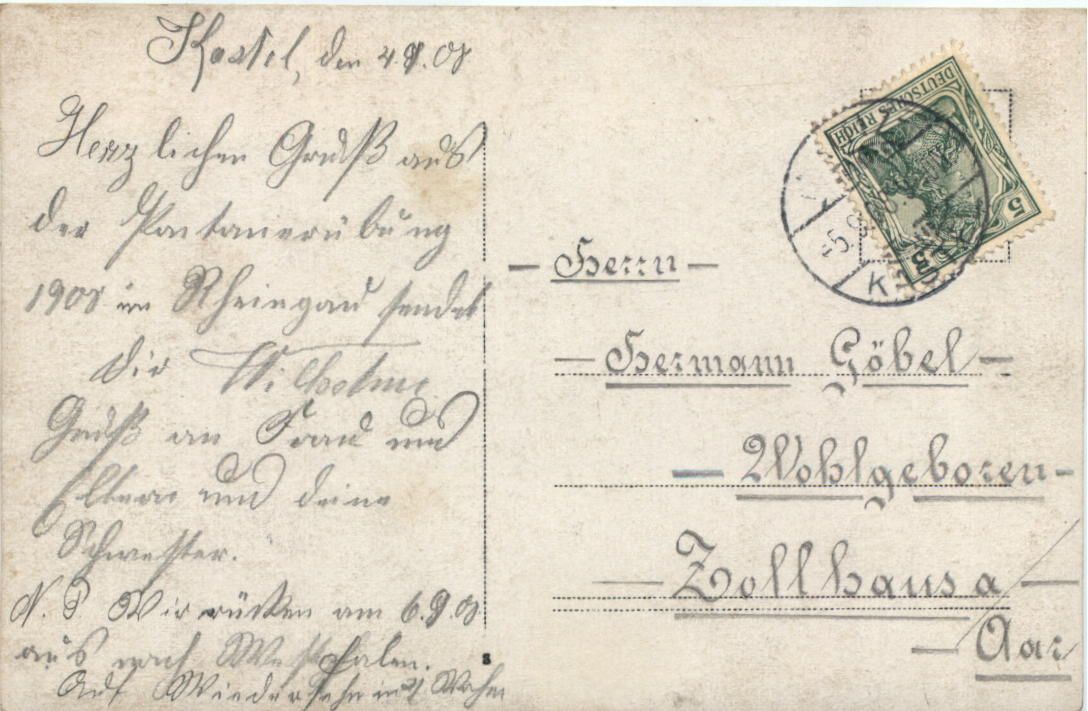 Kastel, den 4.9.08
Herzlichen Gruß aus
der Pontonierübung
1908 im Rheingau sendet
Dir Wilhelm
Gruß an Frau und
Eltern und deine
Schwester.
N. P Wir rücken am 6.9.08
aus nach Westfalen.
Auf Wiedersehn in
Herrn
Hermann Göbel
Wohlgeboren
Zollhaus a/
Aar
DEUTSCHES REICH
5
5
5.9.